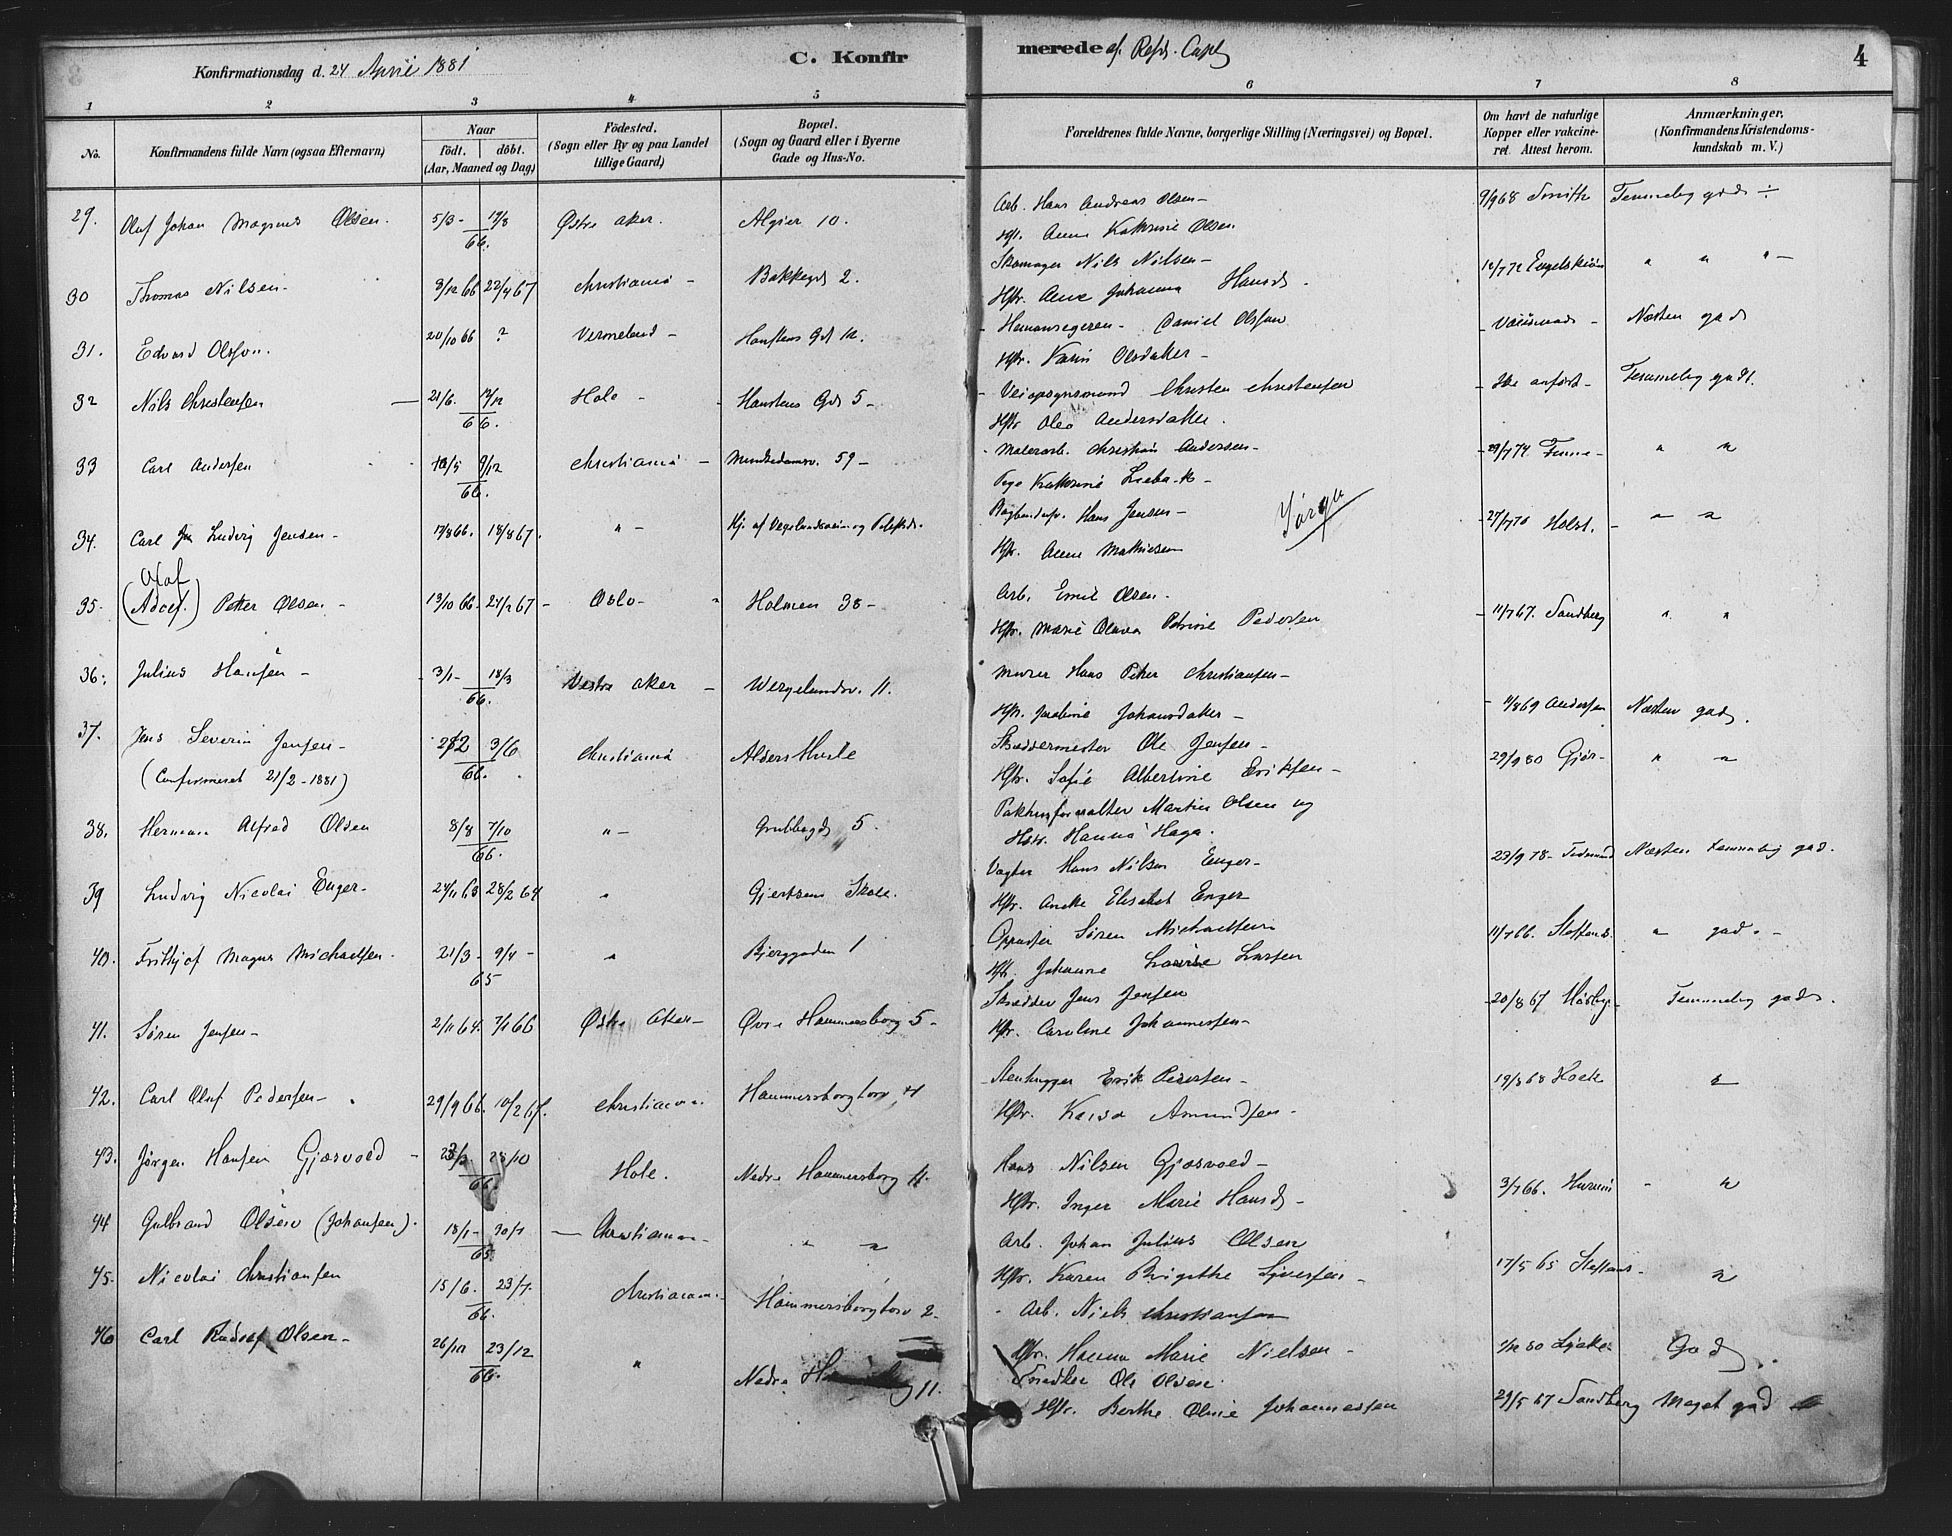 Konfirmationsdag d. 24 April 1881
C. Konfirmerede af Resp. Capl
4
1 2 3 4 5 6 7 8
No.
Konfirmandens fulde Navn (ogsaa Efternavn)
Naar
Födt. döbt.
(Aar, Maaned og Dag)
Födested.
(Sogn eller By og paa Landet
tillige Gaard)
Bopæl.
(Sogn og Gaard eller i Byerne
Gade og Hus-No.
Forældrenes fulde Navne, borgerlige Stilling (Næringsvei) og Bopæl.
Om havt de naturlige
Kopper eller vakcine-
ret. Attest herom.
Anmærkninger.
(Konfirmandens Kristendoms-
kundskab m. V.)
29. Oluf Johan Magnus Olsen. 5/3 - 66. Østre Aker. Algier 10.
Arb. Hans Andreas Olsen -
Hst. Anne Kathrine Olsen
9/9 68 Smith Temmelig god
30 Thomas Nilsen - 3/12 66 22/4 67 Christiania - Bakkegd 2.
Skomager Nils Nilsen -
Hstr. Anne Johanna Hansd.
31. Edvard Olsson. 20/10 66 ? Vermeland - Hausken Gd 12.
Daniel Olsson
Hstr. Karin Olsdaker -
Næsten god
32 Nils Christensen 21/6. 66. Hole - Hauskens Gd 5 -
Christen Christensen
Hstr Olea Andersdaker.
Ikke anført - Temmelig godt.
33 Carl Andersen 66. Christiania - Munkedamsv. 59 -
Malerarb. Christian Andersen -
Pige Kathrine
29/7 74
34. Carl Ludvig Jensen - 17/8 66. 18/8 67. " -
Hans Jensen -
Hstr. Anne Mathiesen
Jørgen
27/7 70 Holst.
Olaf
35. (Adolf.) Petter Olsen - 13/10 66. 24/2 67 - Oslo - Holmen 38 -
Arb. Emil Olsen.
Hstr. Marie Oluva Petrine Pedersen
11/7 67. Sandberg
36. Julius Hansen - 3/1 - 18/3 66. Vestre Aker - Wergelandsv. 11.
Murer Hans Peter Christiansen -
Hstr. Johansdaker -
11/8 69 Andersen Næsten god.
37. Jens Severin Jensen - 3/6 66. Christiania
(Confirmeret 21/2 - 1881)
Skræddermester Ole Jensen -
Hstr. Sofie Albertine Eriksen -
29/9 80
38. Herman Alfred Olsen 8/8 7/10 66. " - Grubbegd 5.
Pakhusforvalter Martin Olsen og
Hstr. Hanna Haga.
23/9 78 - Næsten Temmelig god.
39 Ludvig Nicolai Enger - 24/11 63 28/2 64 " Gjertsens Skole.
Vagter Hans Nilsen Enger -
Hstr. Aneke Elisabet Enger
40. Frithjof Magnus Michaelsen. 21/3 - 9/4 - 65 " Bjerggaden 1
Søren Michaelsen
Hstr. Johanne Lovise Larsen
11/7 66. god. -
41. Søren Jensen - 2/11 64. 7/1 66 Østre Aker - Øvre Hammersborg 5 -
Skrædder Jens Jensen
Hstr. Caroline Johannessen -
20/8 67 Temmelig god.
42. Carl Oluf Pedersen - 29/9 66. 10/2 67. Christiania Hammersborgtorv 4
Stenhugger Erik Pedersen -
Hstr. Kaisa Amundsen -
19/8 68
43. Jørgen Hansen Gjæsvold - 28/10 66. Hole. Nedre Hammersborg 11.
Hans Nilsen Gjæsvold -
Hstr. Inger Marie Hansd -
3/7 66. Hurum
44 Gulbrand Olsen (Johansen). 18/1 - 65. Christiania - " "
Arb. Johan Julius Olsen
Hstr. Karen Brigithe Syversen -
17/5 65
45. Nicolai Christiansen 15/6. 23/7. 66. Christiania - Hammersborgtorv 2.
Arb. Niels Christiansen
Hstr. Hanna Marie Nielsen -
God
46 Carl Rudolf Olsen - 26/10 23/12 66. " Nedre 11.
Snedker Ole Olsen.
Hstr. Berthe Oline Johannessen
29/5 67 Sandberg Meget god